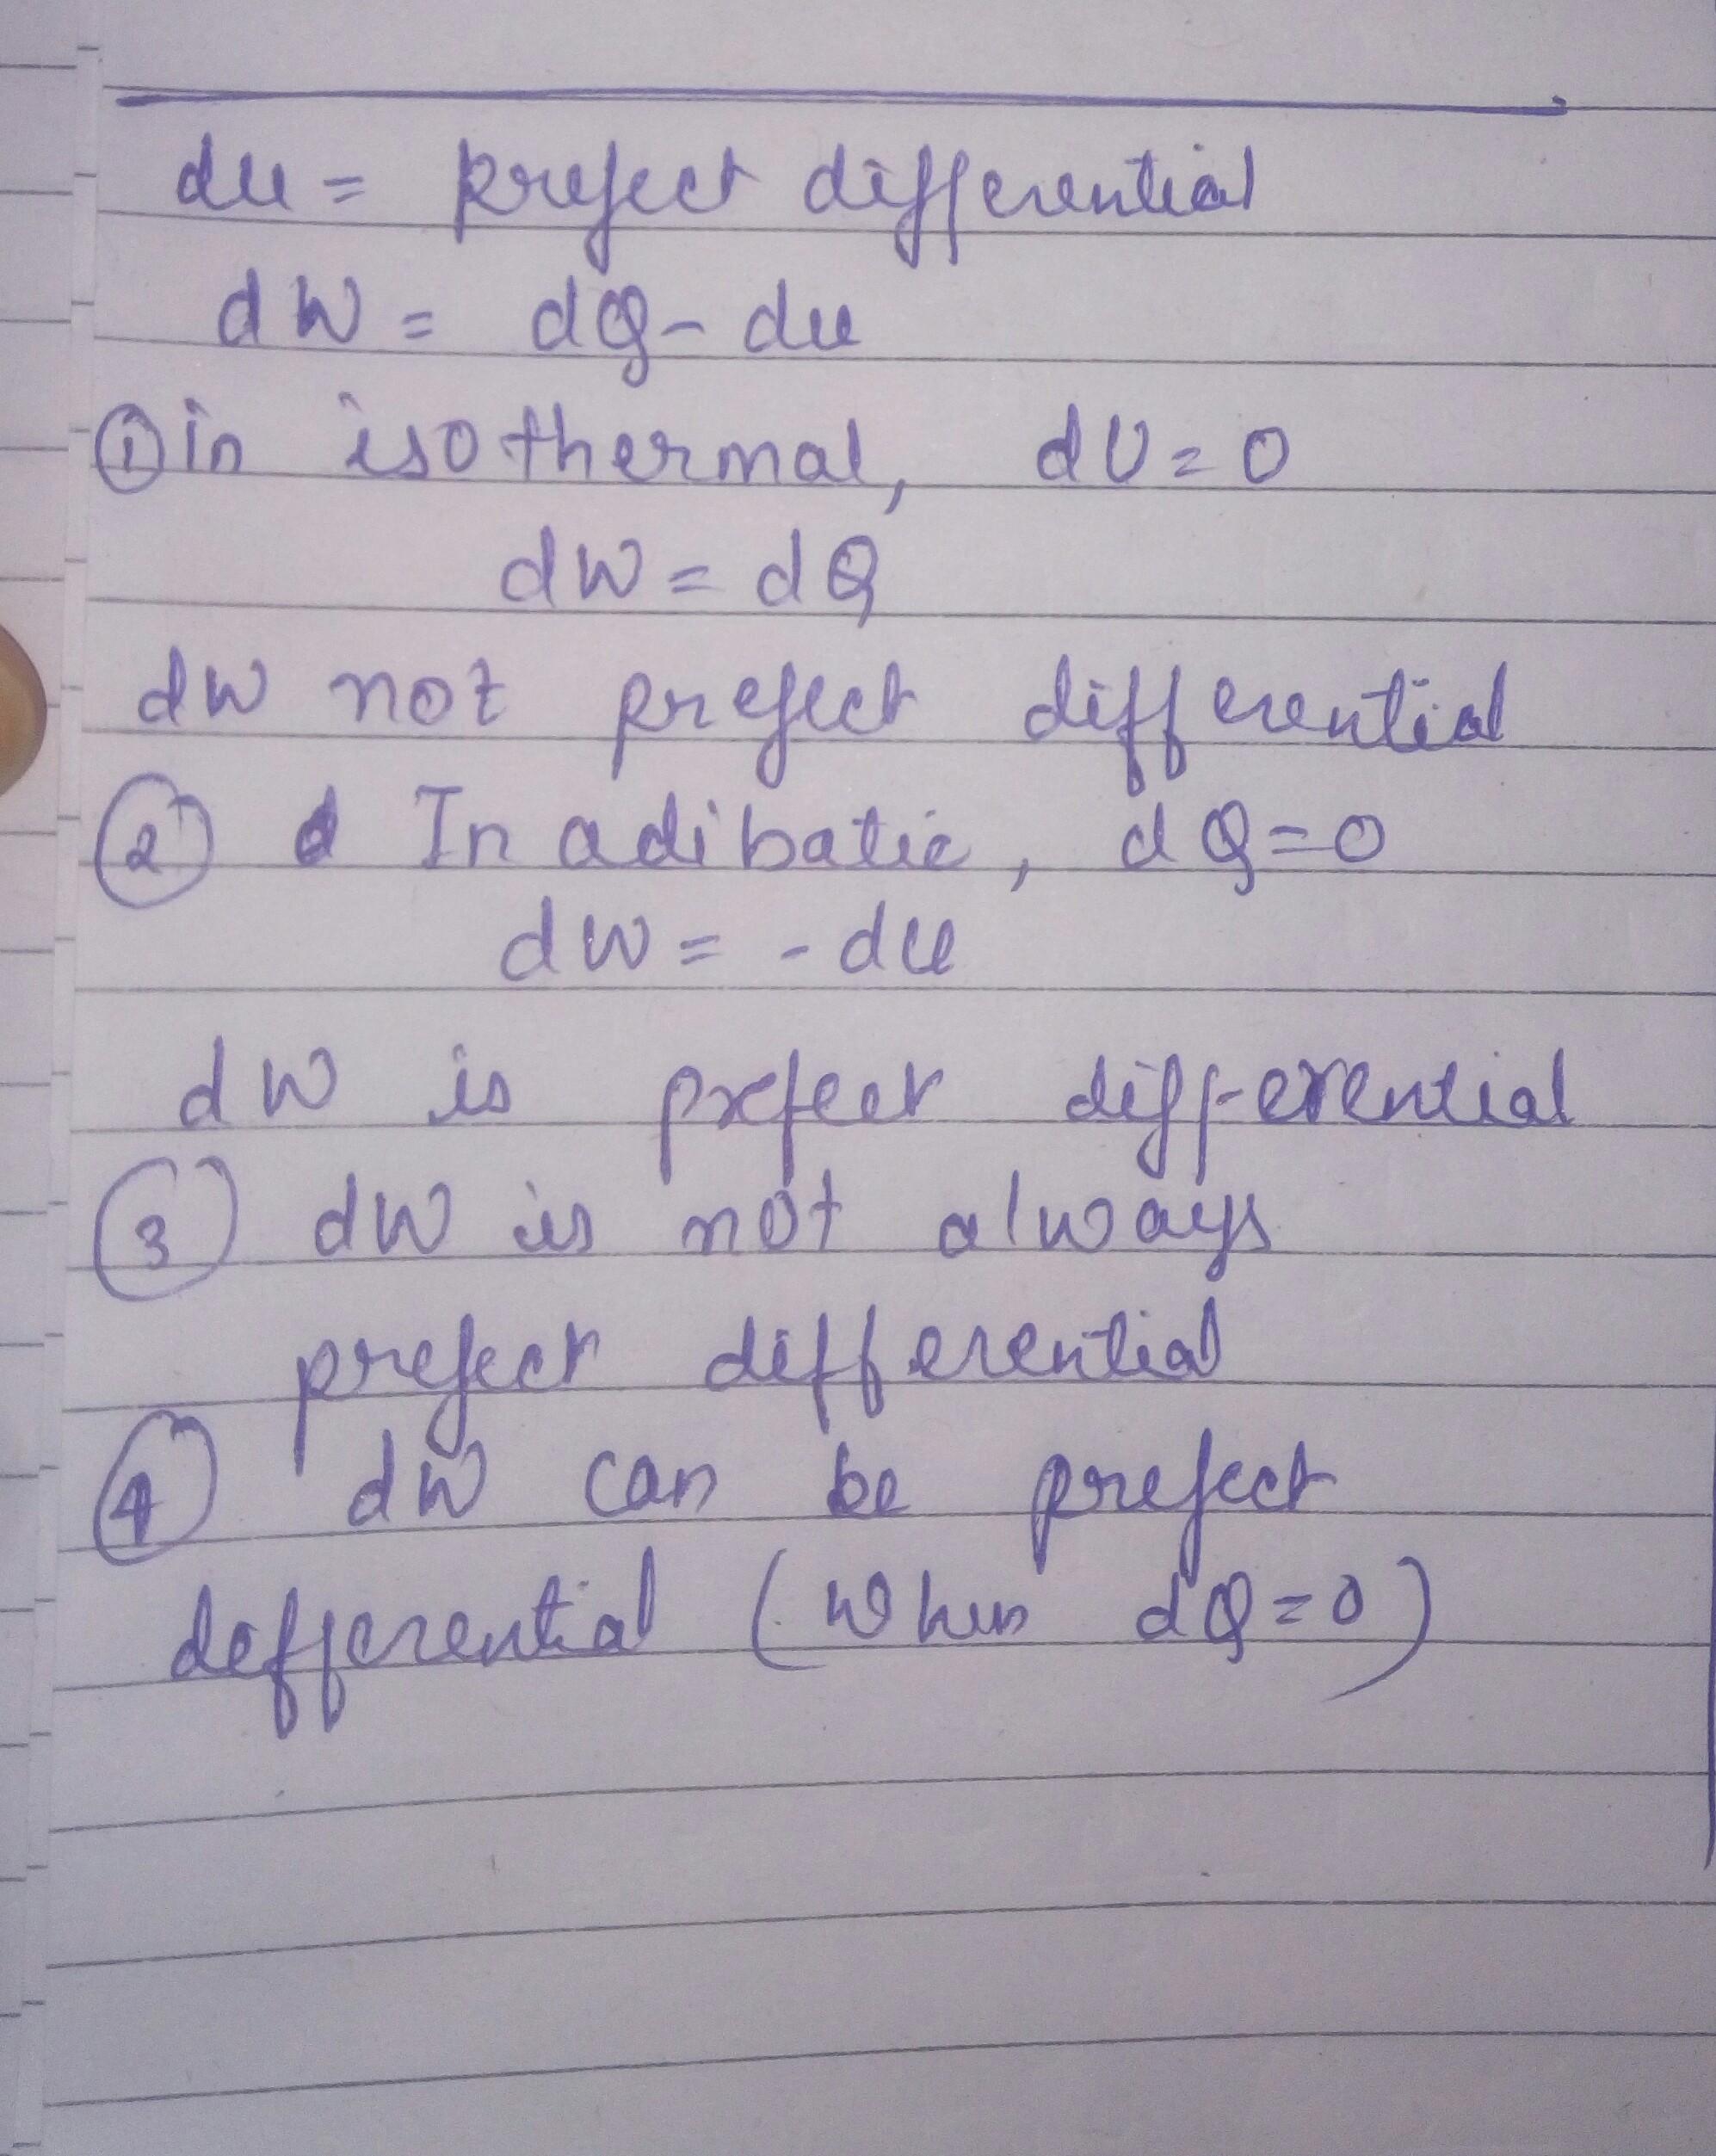 du = prefect differential
dW = dQ - du
① in isothermal, dU = 0
dW = dQ
dw not prefect differential
② In adibatic, dQ = 0
dw = - du
dW is prefect differential
③ dW is not always
prefect differential
④ dW can be prefect
defferential (when dQ = 0)